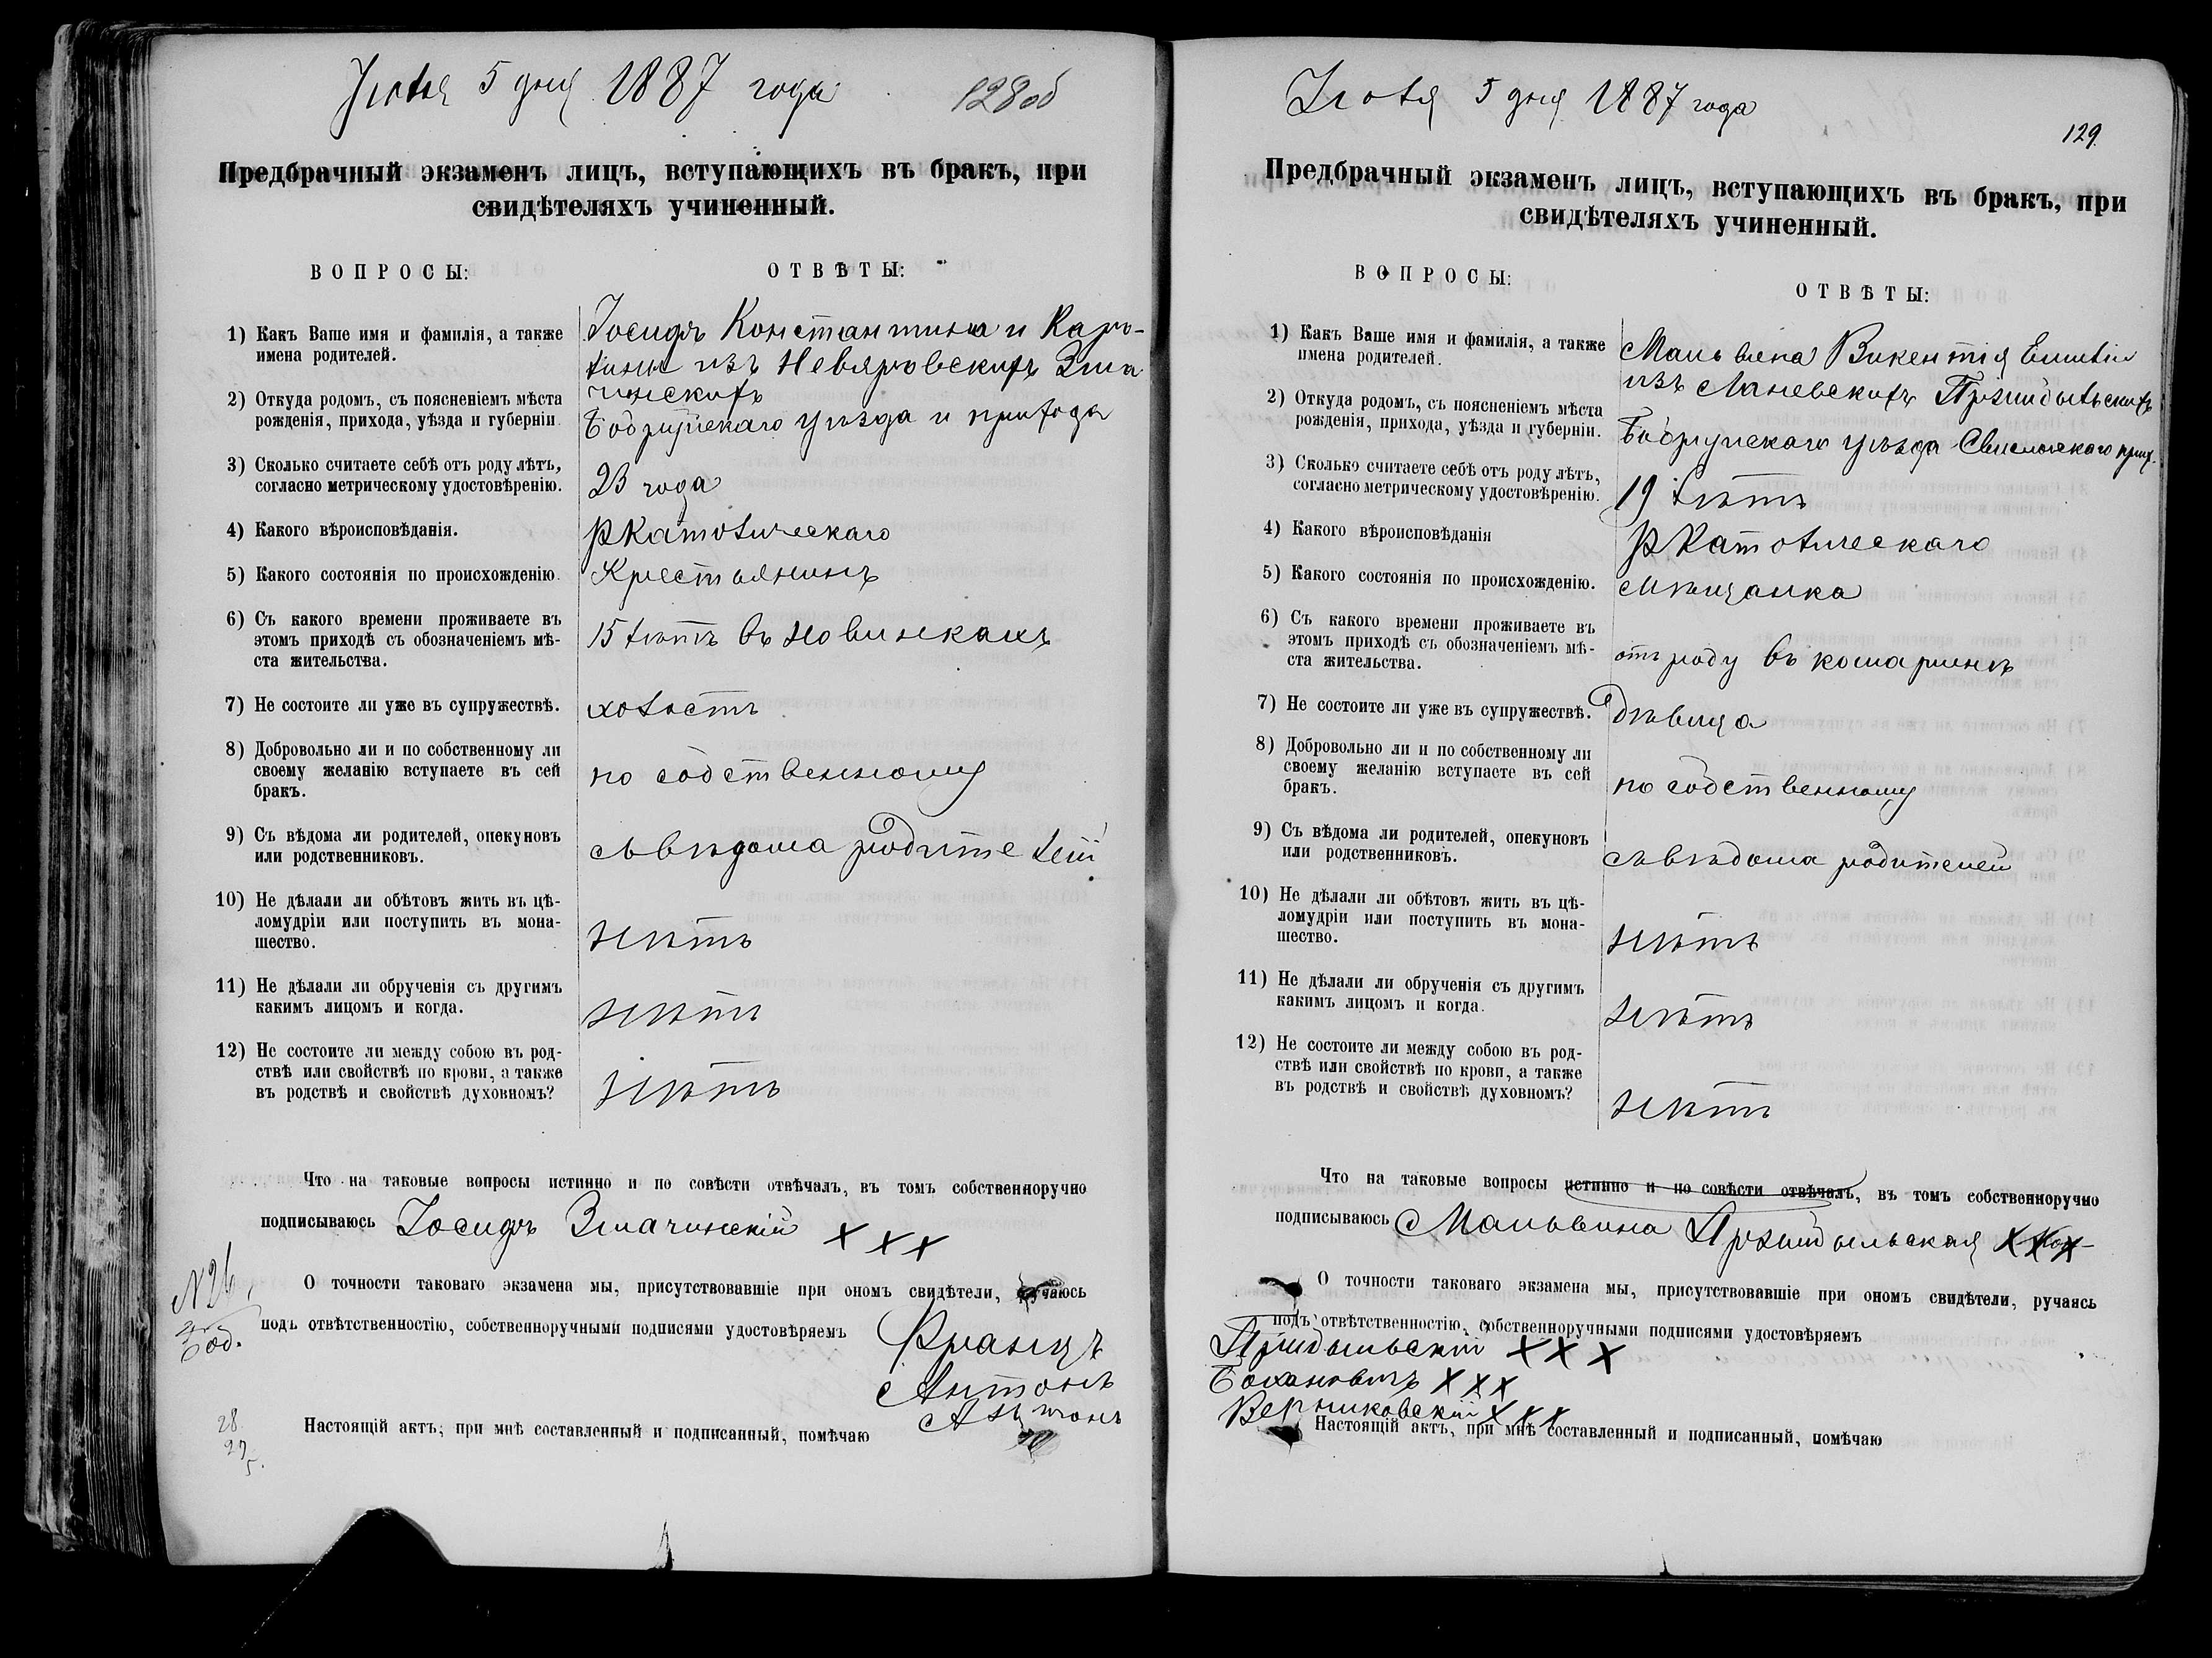 Іюля 5 дня 1887 года
128об
Предбрачный экзаменъ лицъ, вступающихъ въ бракъ, при
свидѣтеляхъ учиненный.
ВОПРОСЫ: ОТВѢТЫ:
1) Какъ Ваше имя и фамилія, а также
имена родителей.
Іосифъ Константина и Каро-
лины изъ Невяровскихъ Зма
чинскихъ
2) Откуда родомъ, съ поясненіемъ мѣста
рожденія, прихода, уѣзда и губерніи.
Бобруйскаго уѣзда и прихода
3) Сколько считаете себѣ отъ роду лѣтъ,
согласно метрическому удостовѣренію.
23 года
4) Какого вѣроисповѣданія.
РКатолическаго
5) Какого состоянія по происхожденію.
Крестьянинъ
6) Съ какого времени проживаете въ
этомъ приходѣ съ обозначеніемъ мѣ-
ста жительства.
15 лѣтъ въ Новинкахъ
7) Не состоите ли уже въ супружествѣ.
холостъ
8) Добровольно ли и по собственному ли
своему желанію вступаете въ сей
бракъ.
по собственному
9) Съ вѣдома ли родителей, опекуновъ
или родственниковъ.
съ вѣдома родителей
10) Не дѣлали ли обѣтовъ жить въ цѣ-
ломудріи или поступить въ мона-
шество.
нѣтъ
11) Не дѣлали ли обрученія съ другимъ
какимъ лицомъ и когда.
нѣтъ
12) Не состоите ли между собою въ род-
ствѣ или свойствѣ по крови, а также
въ родствѣ и свойствѣ духовномъ?
нѣтъ
Что на таковые вопросы истинно и по совѣсти отвѣчалъ, въ томъ собственноручно
подписываюсь Іосифъ Змачинскій ХХХ
N 26
О точности таковаго экзамена мы, присутствовавшіе при ономъ свидѣтели, ручаюсь
подъ отвѣтственностію, собственноручными подписями удостовѣряемъ
Францъ
Антонъ
Антонъ
28
27
5.
Настоящій актъ, при мнѣ составленный и подписанный, помѣчаю
Іюля 5 дня 1887 года
129.
Предбрачный экзаменъ лицъ, вступающихъ въ бракъ, при
свидѣтеляхъ учиненный.
ВОПРОСЫ: ОТВѢТЫ:
1) Какъ Ваше имя и фамилія, а также
имена родителей.
Мальвина Викентія Емиліи
изъ Маневскихъ Пршибыльскихъ
2) Откуда родомъ, съ поясненіемъ мѣста
рожденія, прихода, уѣзда и губерніи.
Бобруйскаго уѣзда Свислочскаго прих.
3) Сколько считаете себѣ отъ роду лѣтъ,
согласно метрическому удостовѣренію.
19 лѣтъ
4) Какого вѣроисповѣданія
РКатолическаго
5) Какого состоянія по происхожденію.
мѣщанка
6) Съ какого времени проживаете въ
этомъ приходѣ съ обозначеніемъ мѣ-
ста жительства.
отъ роду въ комаринѣ
7) Не состоите ли уже въ супружествѣ.
дѣвица
8) Добровольно ли и по собственному ли
своему желанію вступаете въ сей
бракъ.
по собственному
9) Съ вѣдома ли родителей, опекуновъ
или родственниковъ.
съ вѣдома родителей
10) Не дѣлали ли обѣтовъ жить въ цѣ-
ломудріи или поступить въ мона-
шество.
нѣтъ
11) Не дѣлали ли обрученія съ другимъ
какимъ лицомъ и когда.
нѣтъ
12) Не состоите ли между собою въ род-
ствѣ или свойствѣ по крови, а также
въ родствѣ и свойствѣ духовномъ?
нѣтъ
Что на таковые вопросы истинно и по совѣсти отвѣчалъ, въ томъ собственноручно
подписываюсь Мальвина Пршибыльская ХХХ
О точности таковаго экзамена мы, присутствовавшіе при ономъ свидѣтели, ручаясь
подъ отвѣтственностію, собственноручными подписями удостовѣряемъ
Пршибыльскій ХХХ
Бохановичъ ХХХ
Верниковскій ХХХ
Настоящій актъ, при мнѣ составленный и подписанный, помѣчаю